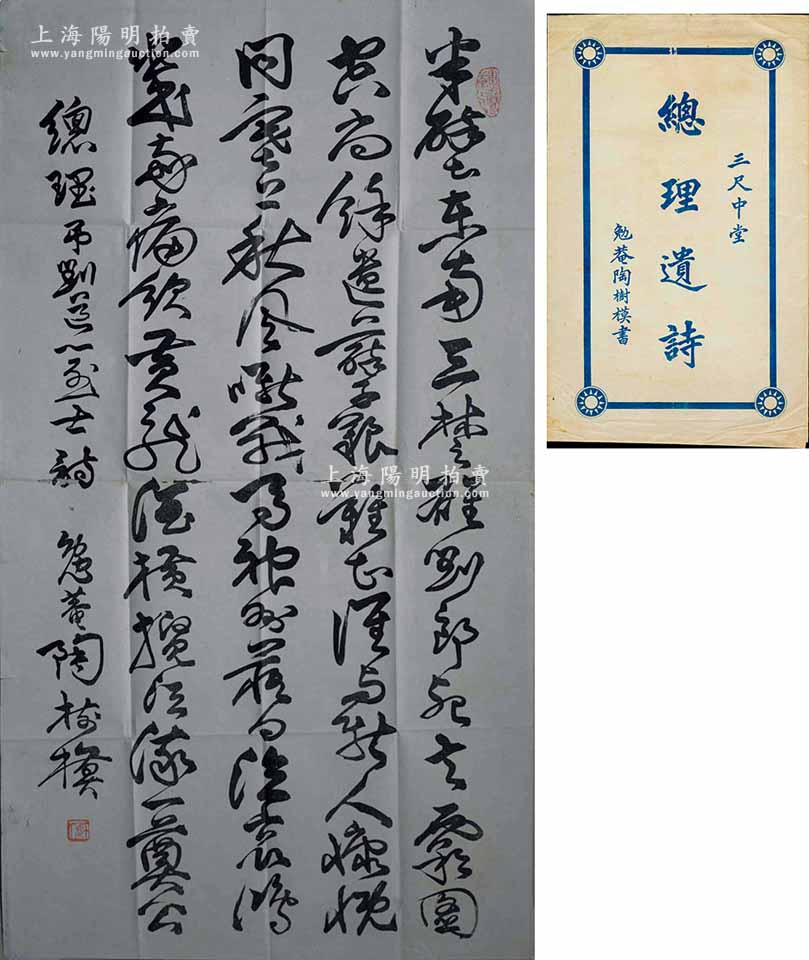 半壁東南三楚雄劉郎死去霸圖
空尚餘遺孽艱難甚誰與斯人慷慨
同塞上秋風嘶戰馬神州落日泣哀鴻
幾時痛飲黃龍酒橫攬江流一奠公
總理弔劉道一烈士詩 勉菴陶樹模
三尺中堂
總理遺詩
勉菴陶樹模書
上海陽明拍賣
www.yangmingauction.com
上海陽明拍賣
www.yangmingauction.com